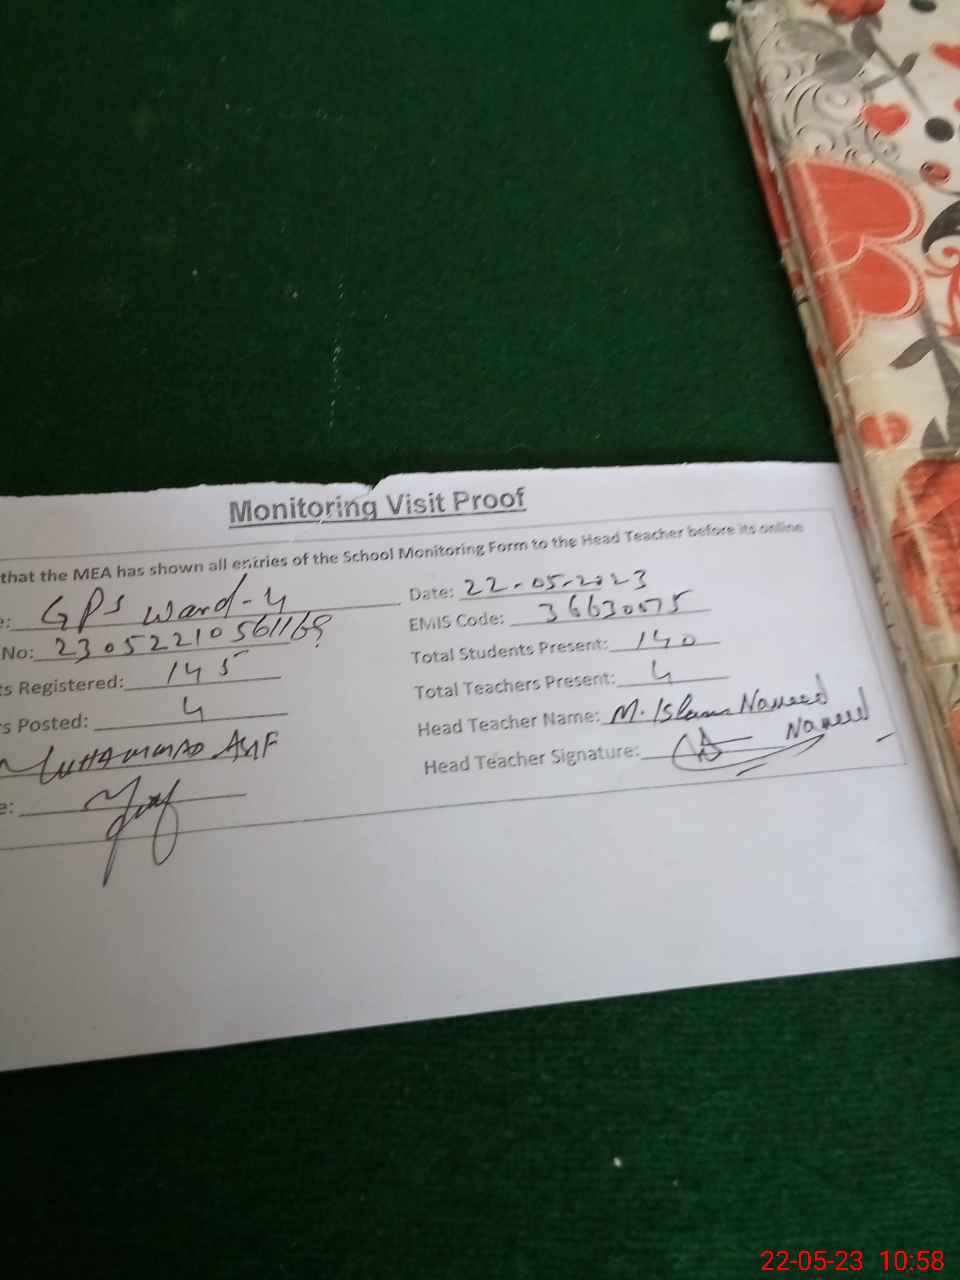 Monitoring Visit Proof
that the MEA has shown all entries of the School Monitoring Form to the Head Teacher before its online
e: GPS Ward-4 Date: 22-05-2023
No: 230522105611689 EMIS Code: 36630075
ts Registered: 145 Total Students Present: 140
rs Posted: 4 Total Teachers Present: 4
MUHAMMAD ASIF Head Teacher Name: M. Islam Naveed
e: Head Teacher Signature: Naveed
22-05-23 10:58